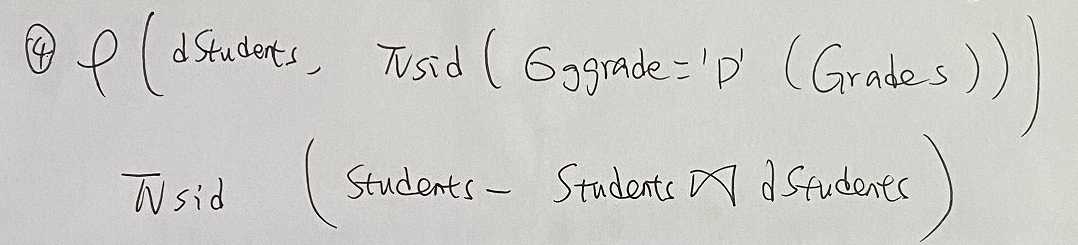 ④ ρ ( dStudents, πsid ( σggrade='D' (Grades)))
πsid ( Students - Students ⋈ dStudents )